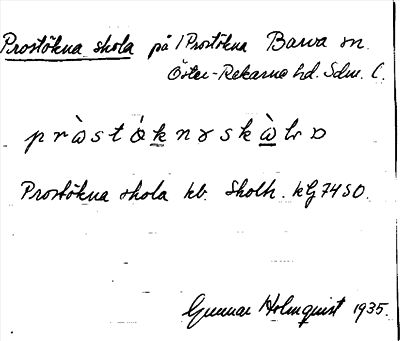 Prostökna skola på /Prostökna Barva sn.
Öster-Rekarne hd. Sdm. l.
pràstö́knɤskàlɒ
Prostökna skola kb. Skolh. kG 74 SO.
Gunnar Holmquist 1935.